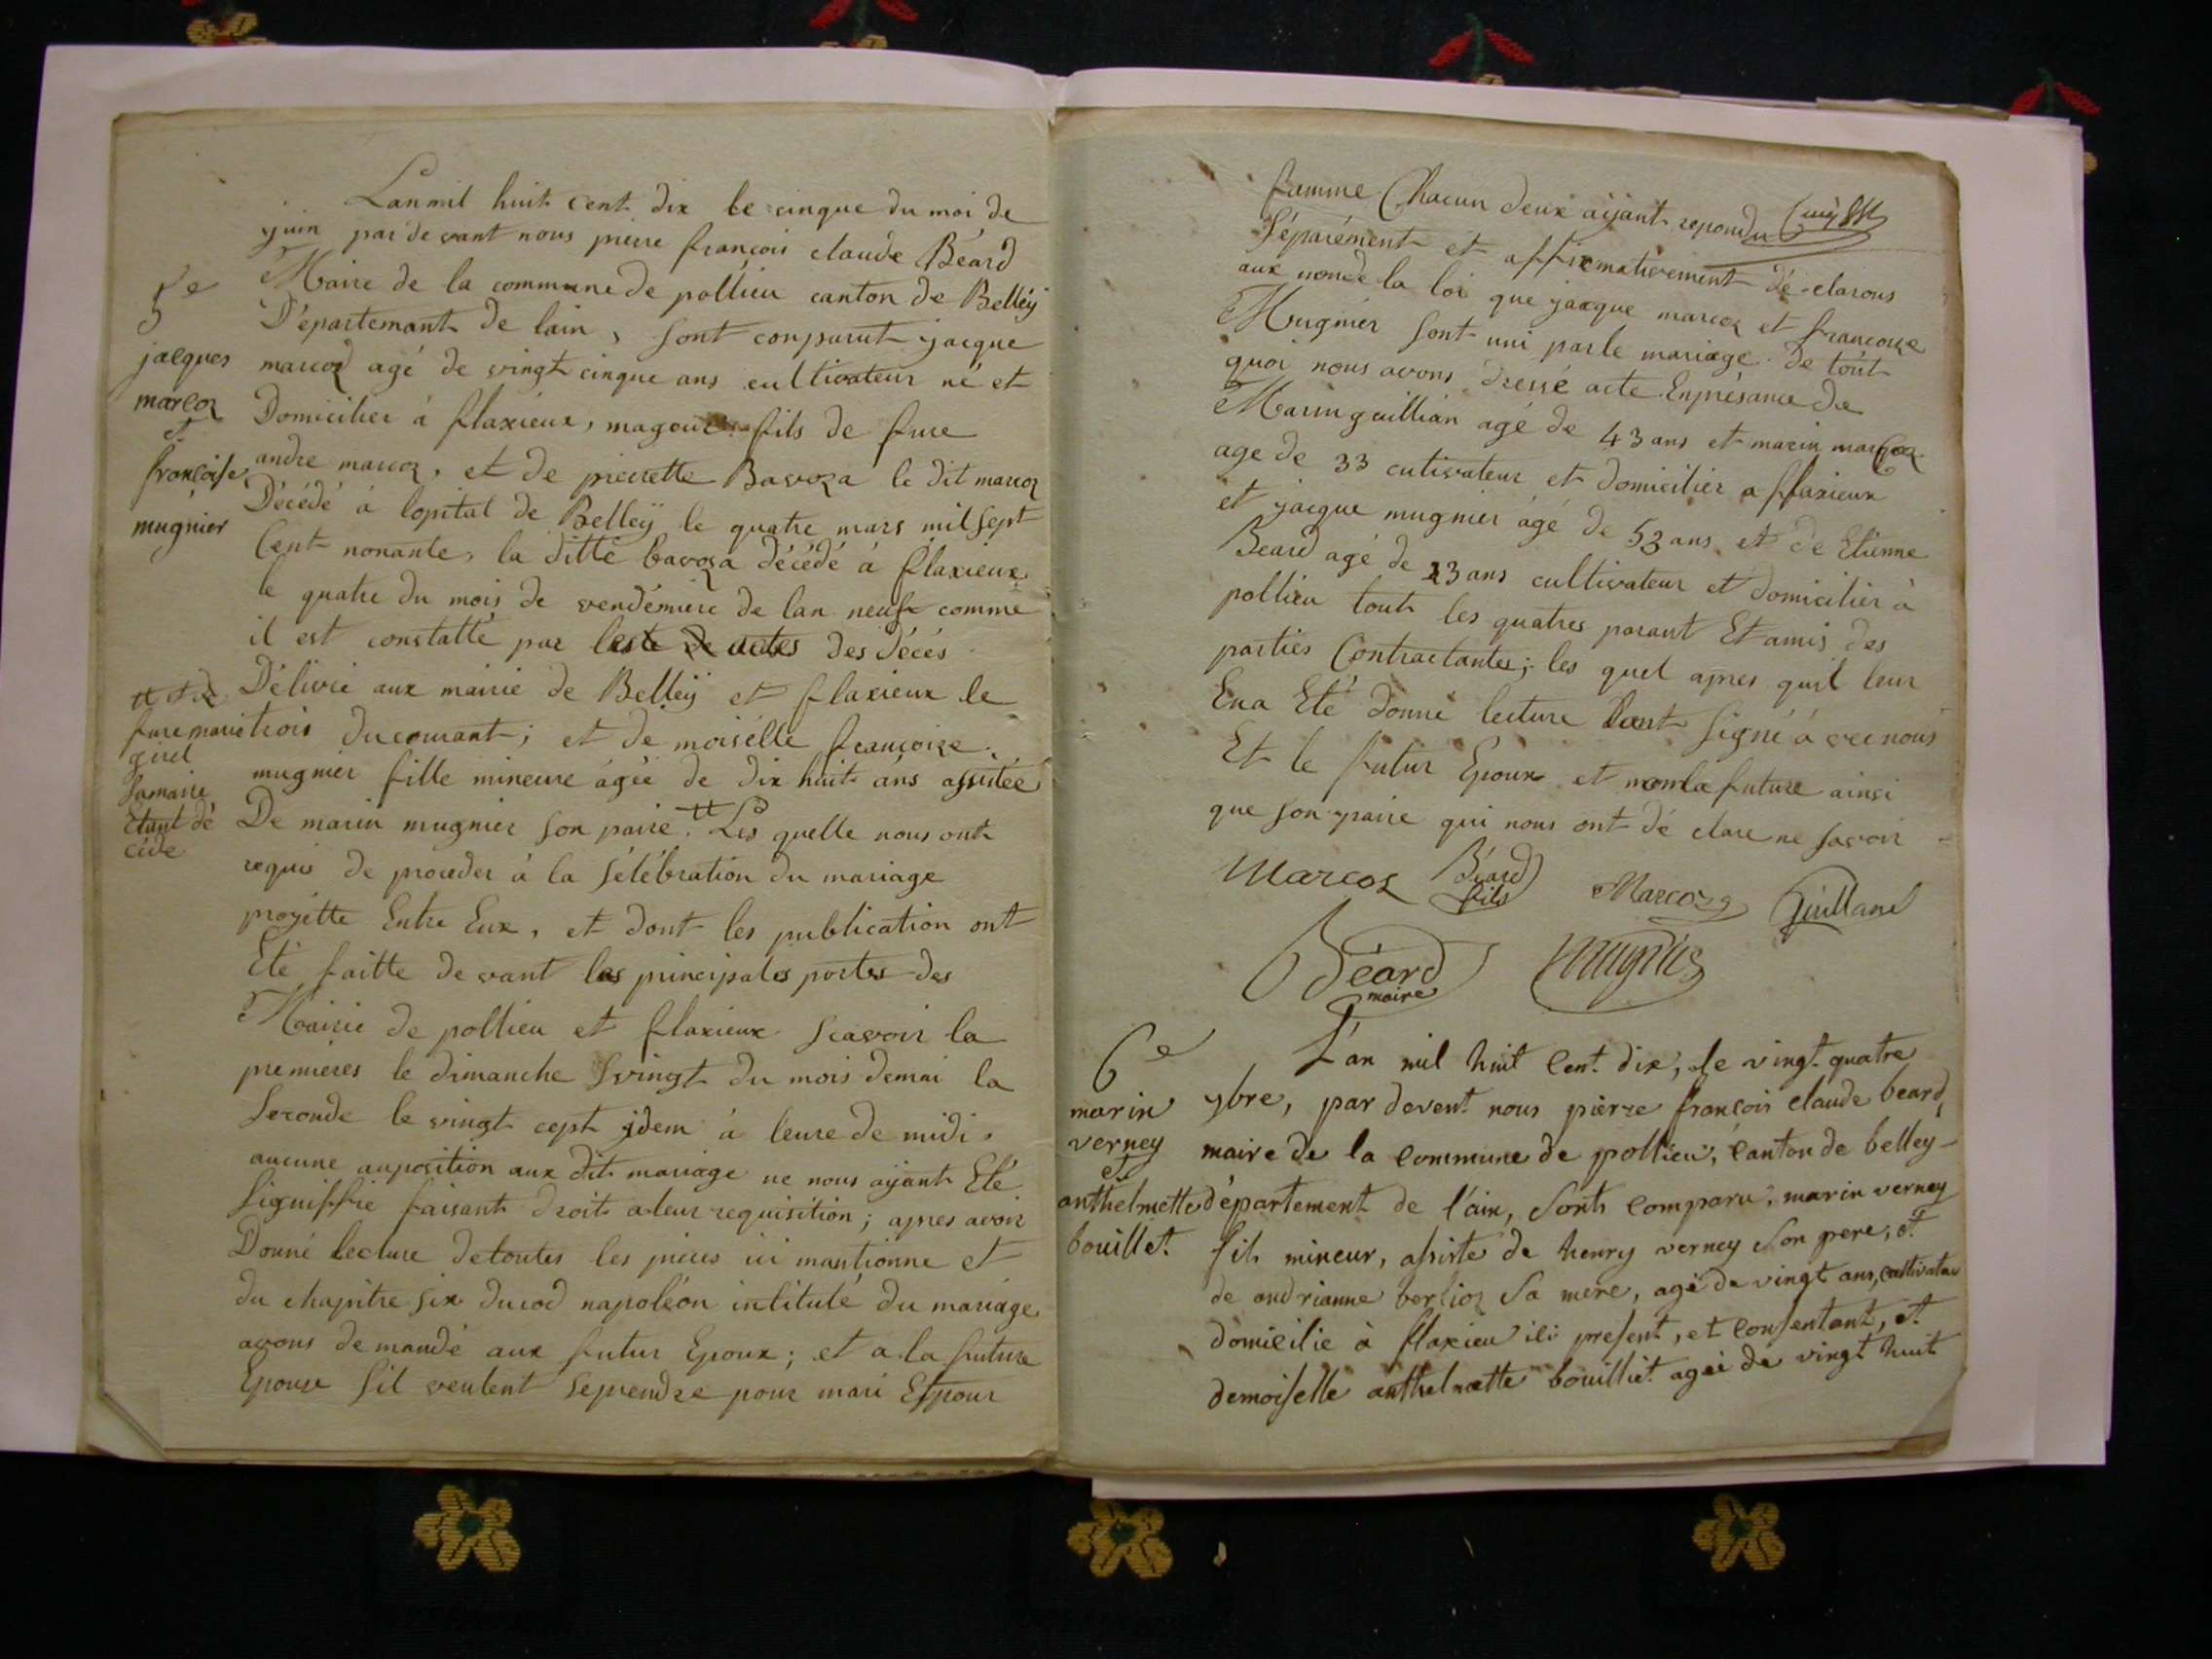 Lan mil huit cent dix le cinque du moi de
juin par de vant nous pierre françois claude Béard
Maire de la commune de pollieu canton de Belleÿ
Départemant de lain, sont conparut jacque
marcoz agé de vingt cinque ans cultivateur né et
Domicilier à flaxieux, magour fils de fure
andre marcoz, et de pierrette Bavoza le dit marcoz
Décédé à lopital de Belleÿ le quatre mars mil sept
Cent nonante, la ditte bavoza décédé à flaxieux
le quatre du mois de vendémiere de lan neuf comme
il est constatté par actes des décés
Délivré aux mairie de Belleÿ et flaxieux le
trois du courant; et de moisélle francoize
mugnier fille mineure ágée de dix huit ans assitée
De marin mugnier son paire. # Les quelle nous ont
requis de proceder à la sélébration du mariage
projitte Entre Eux, et dont les publication ont
Eté faitte de vant las principales portes des
Mairie de pollieu et flaxieux scavoir la
premieres le dimanche vingt du mois demai la
seconde le vingt cept idem à leure de midi.
aucune auposition aux dit mariage ne nous aÿant Eté
signiffié faisant droit a leur requisition; apres avoir
Donné lecture detoutes les pieces ici mantionne et
du chapitre six du cod napoléon intitulé du mariage
avons de mandé aux futur Epoux; et a la future
Epouse sil veulent seprendre pour mari Et pour
5e
jacques
marcoz
et
françoise
mugnier
fure marie
girel
samaire
Etant dé
cédé
famme Chacun deux aÿant repondu
séparément et affirmativement dé clarons
aux nom de la loi que jacque marcoz et francoize
Mugnier sont uni par le mariage. De tout
quoi nous avons dressé acte Enprésance de
Marin guillian agé de 43 ans et marin marcoz
age de 33 cutivateur et domicilier a flaxieux
et jacque mugnier agé de 53 ans et de Etienne
Beard agé de 23 ans cultivateur et domicilier à
pollieu tout les quatres parant Et amis des
parties Contractantes; les quel apres quil leur
Ena Eté donné lecture lont signé á vec nous
Et le futur Epoux et non la future ainsi
que son paire qui nous ont dé clare ne savoir
Marcoz Béard fils Marcoz Guilland
Béard maire mugnier
6e
marin
verney
et
anthelmette
bouillet.
L'an mil huit Cent dix, le vingt quatre
9bre, par devent nous pierre françois claude beard,
maire de la Commune de pollieu, Canton de belley
département de l'ain, sonts Comparu, marin verney
fils mineur, assisté de henry verney son pere, et
de andrianne berlioz sa mere, agé de vingt ans, cultivateur
domicilié à flaxieu ici present, et Consentant, et
demoiselle anthelmette bouilliet agée de vingt huit